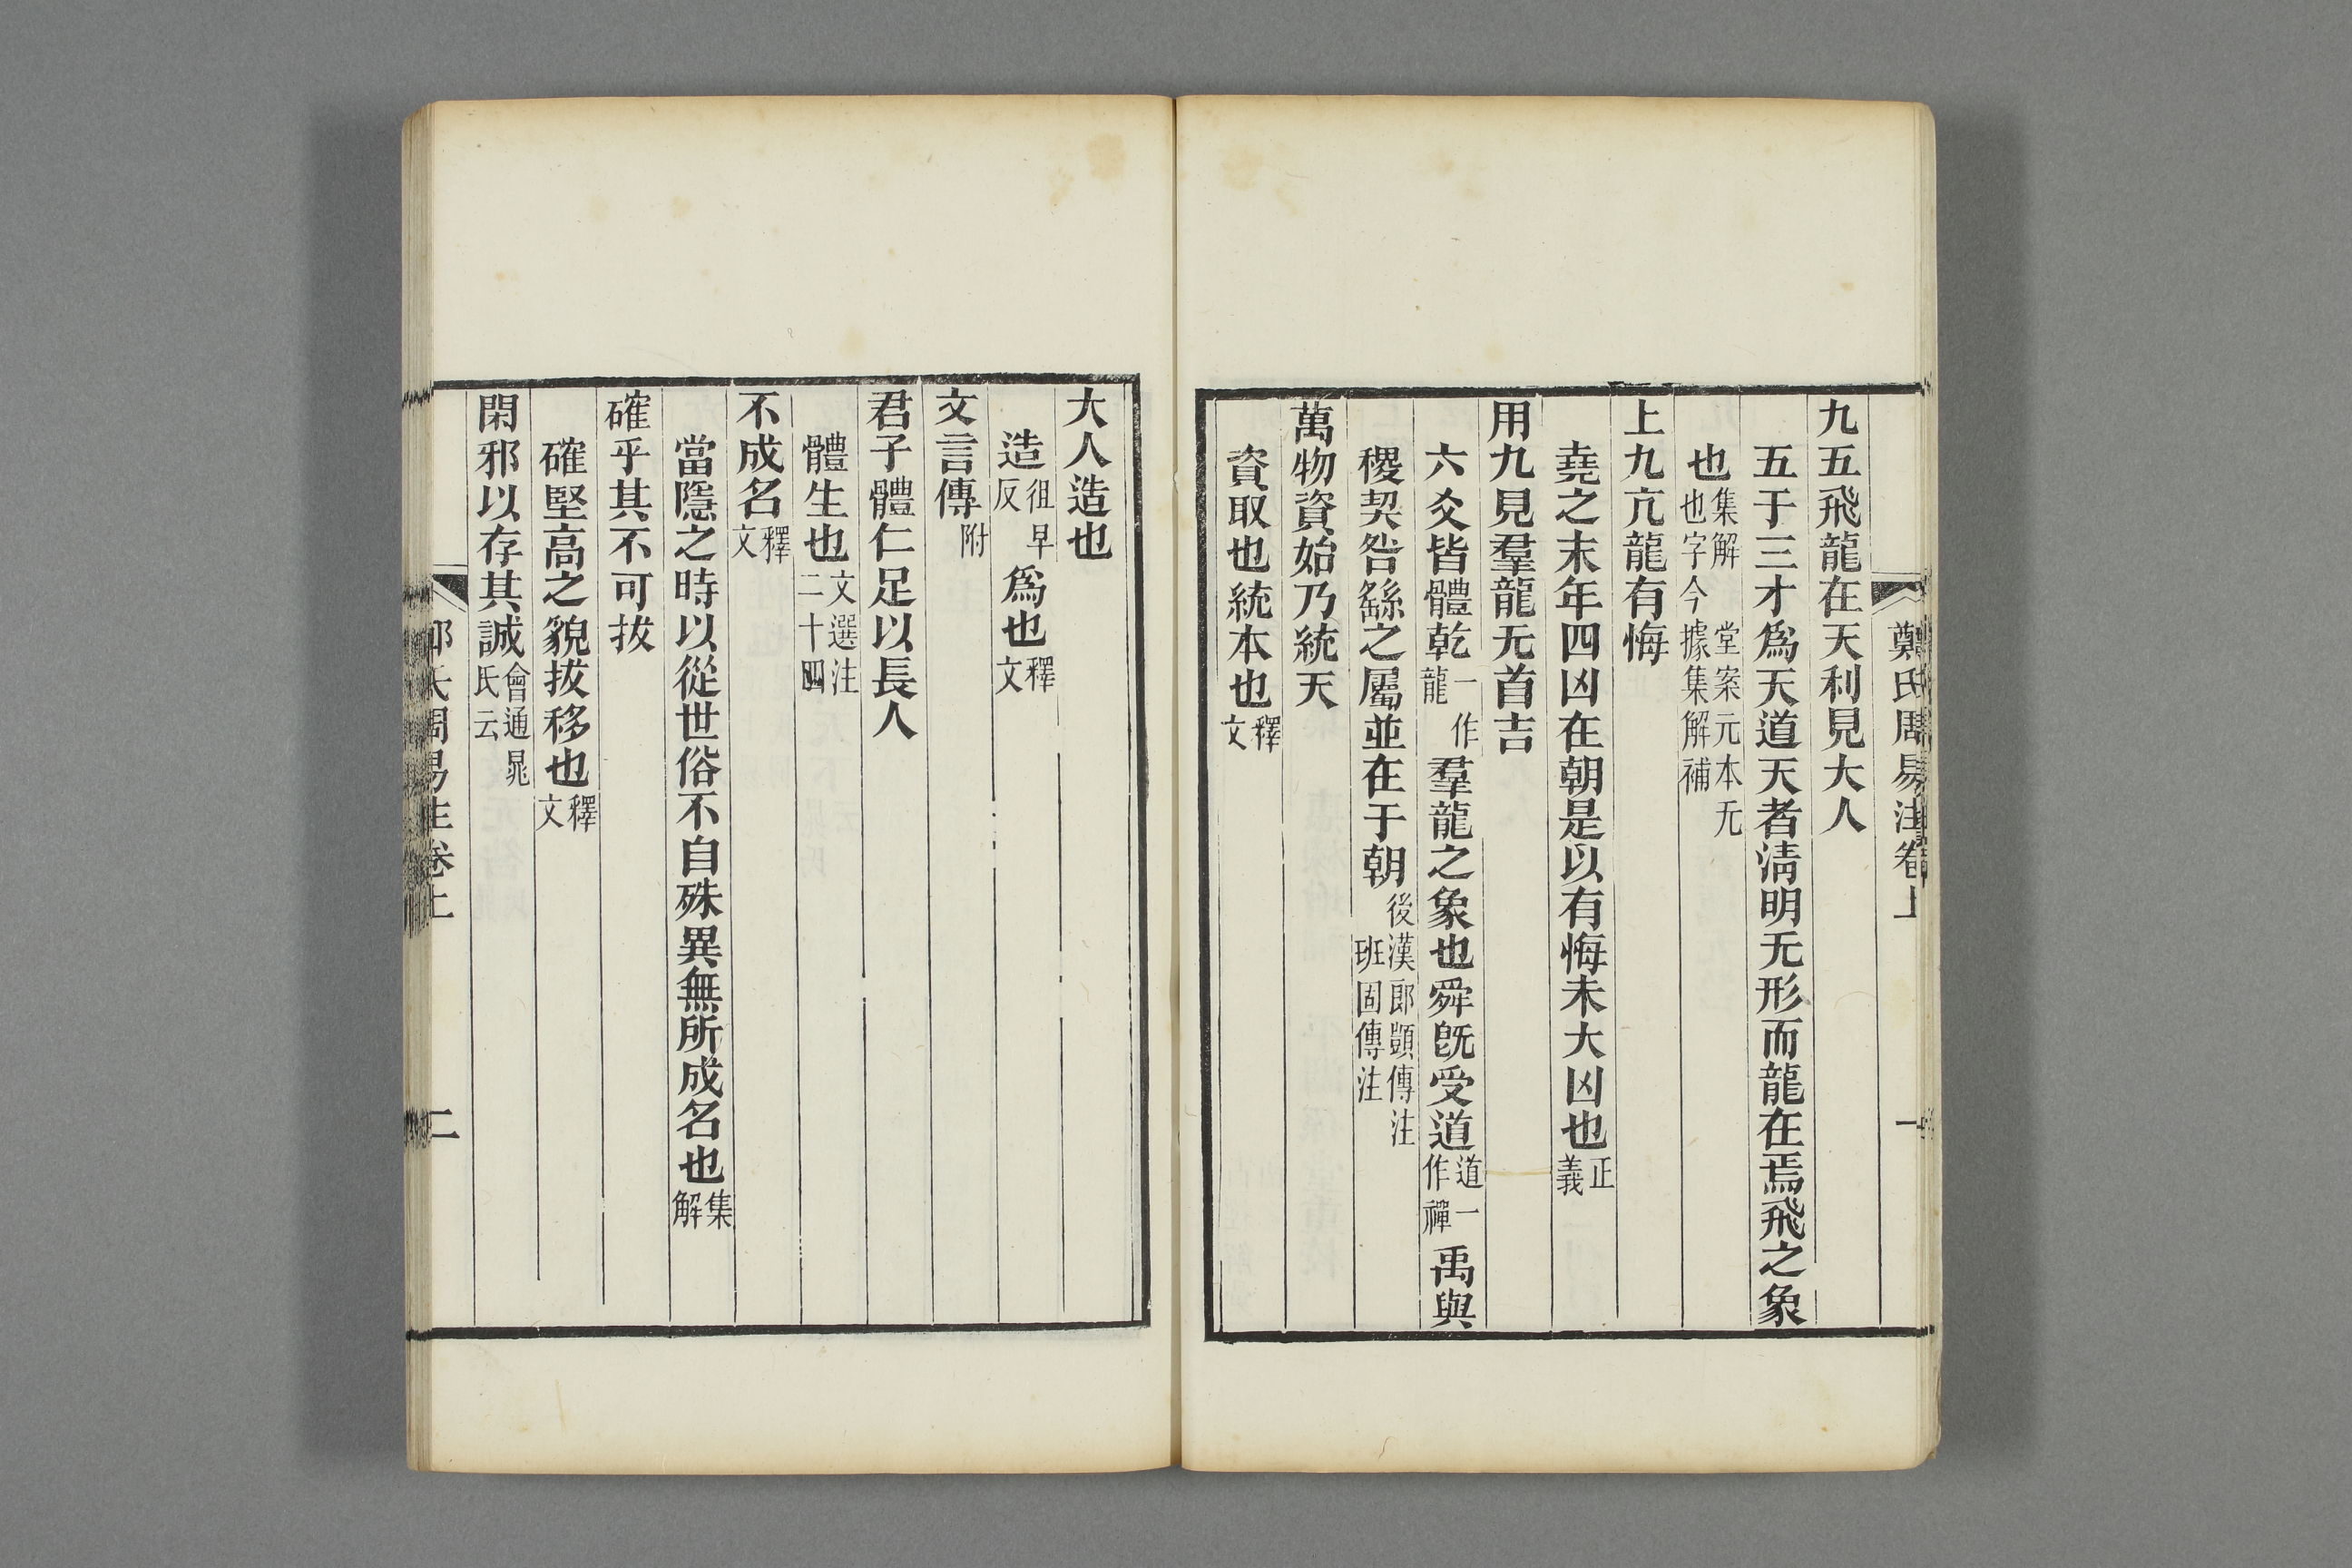 鄭氏周易注卷上 一
九五飛龍在天利見大人
五于三才爲天道天者淸明无形而龍在焉飛之象
也集解 堂案元本无也字今據集解補
上九亢龍有悔
堯之末年四凶在朝是以有悔未大凶也正義
用九見羣龍无首吉
六爻皆體乾一作龍羣龍之象也舜旣受道道一作禪禹與
稷契咎繇之屬並在于朝後漢郞顗傳注班固傳注
萬物資始乃統天
資取也統本也釋文
大人造也
造徂早反爲也釋文
文言傳附
君子體仁足以長人
體生也文選注二十四
不成名釋文
當隱之時以從世俗不自殊異無所成名也集解
確乎其不可拔
確堅高之貌拔移也釋文
閑邪以存其誠會通晁氏云
氏周易注卷上 二